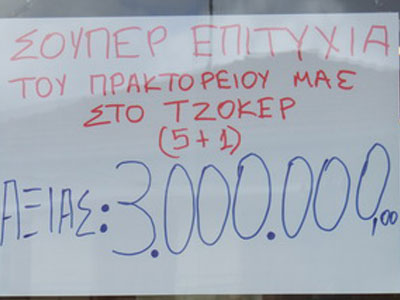 ΣΟΥΠΕΡ ΕΠΙΤΥΧΙΑ
ΤΟΥ ΠΡΑΚΤΟΡΕΙΟΥ ΜΑΣ
ΣΤΟ ΤΖΟΚΕΡ
(5+1)
ΑΞΙΑΣ: 3.000.000,00